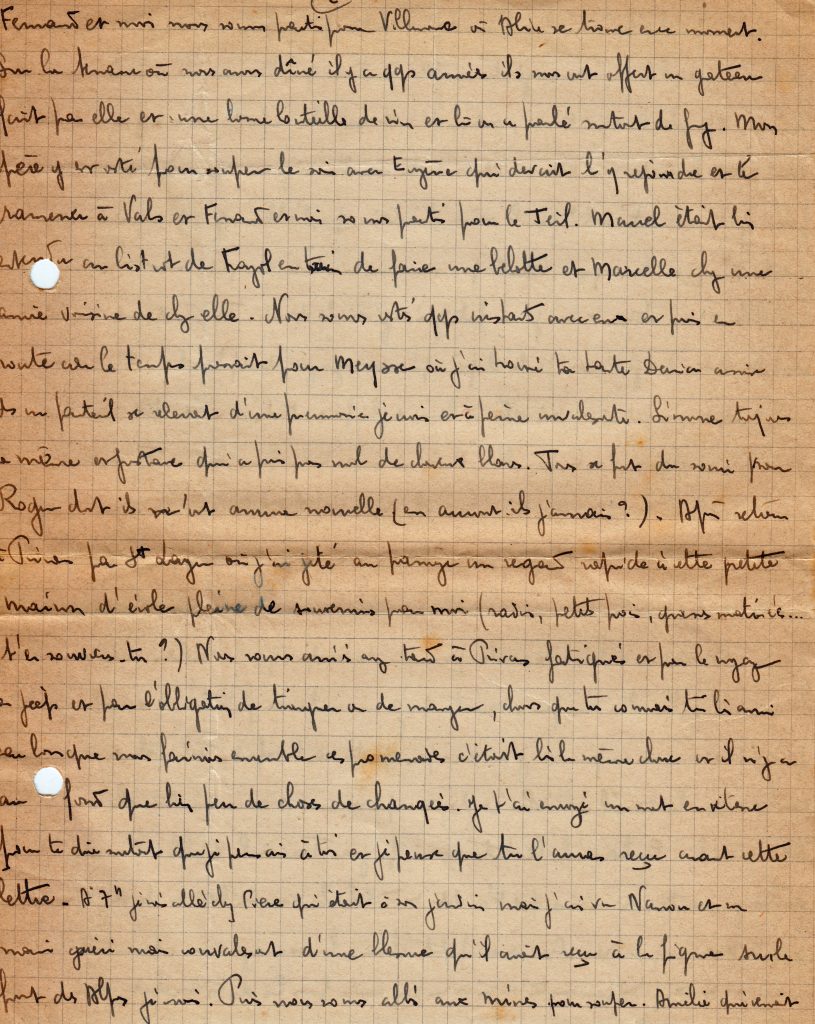 Fernand et moi nous sommes partis pour Villeneuve où Aline se trouve en ce moment.
Sur la terrasse où nous avons dîné il y a qqs années ils nous ont offert un gateau
fait par elle et une bonne bouteille de vin et là on a parlé surtout de guy. Mon
père y est resté pour souper le soir avec Eugène qui devait l'y rejoindre et le
ramener à Vals et Fernand et moi sommes partis pour le Teil. Marcel était bien
entendu au bistrot de en train de faire une belotte et Marcelle chez une
amie voisine de chez elle. Nous sommes restés qqs instants avec eux et puis en
route car le temps pressait pour Meysse où j'ai trouvé ta tante assise
ds un fauteuil se relevant d'une pneumonie je crois et à peine convalescente. Simone toujours
la même et Gustave qui a pris pas mal de cheveux blancs. Tous se font du souci pour
Roger dont ils n'ont aucune nouvelle (en auront-ils jamais ?). Après retour
à Privas par St Lager où j'ai jeté au passage un regard rapide à cette petite
maison d'école pleine de souvenirs pour moi (radis, petits pois, grasses matinées...
t'en souviens-tu ?) Nous sommes arrivés assez tard à Privas fatigués et par le voyage
en jeep et par l'obligation de trinquer ou de manger, choses que tu connais très bien aussi
car lorsque nous faisions ensemble ces promenades c'était bien la même chose et il n'y a
au fond que bien peu de choses de changées. Je t'ai envoyé un mot en vitesse
pour te dire surtout que je pensais à toi et je pense que tu l'auras reçu avant cette
lettre. A 7h je suis allé chez Pierre qui était à son jardin mais j'ai vu Nanou et son
mari guéri mais convalescent d'une blessure qu'il avait reçu à la figure sur le
front des Alpes je crois. Puis nous sommes allés aux mines pour souper. Amélie qui venait